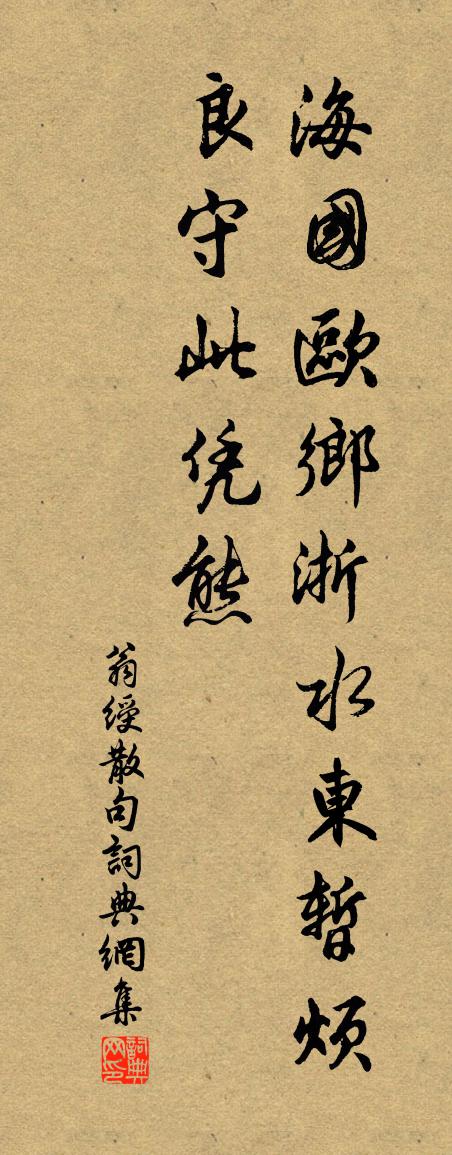 海國歐鄉浙水東暫煩
良守此凭熊
翁綬散句詞典網集
詞典网印